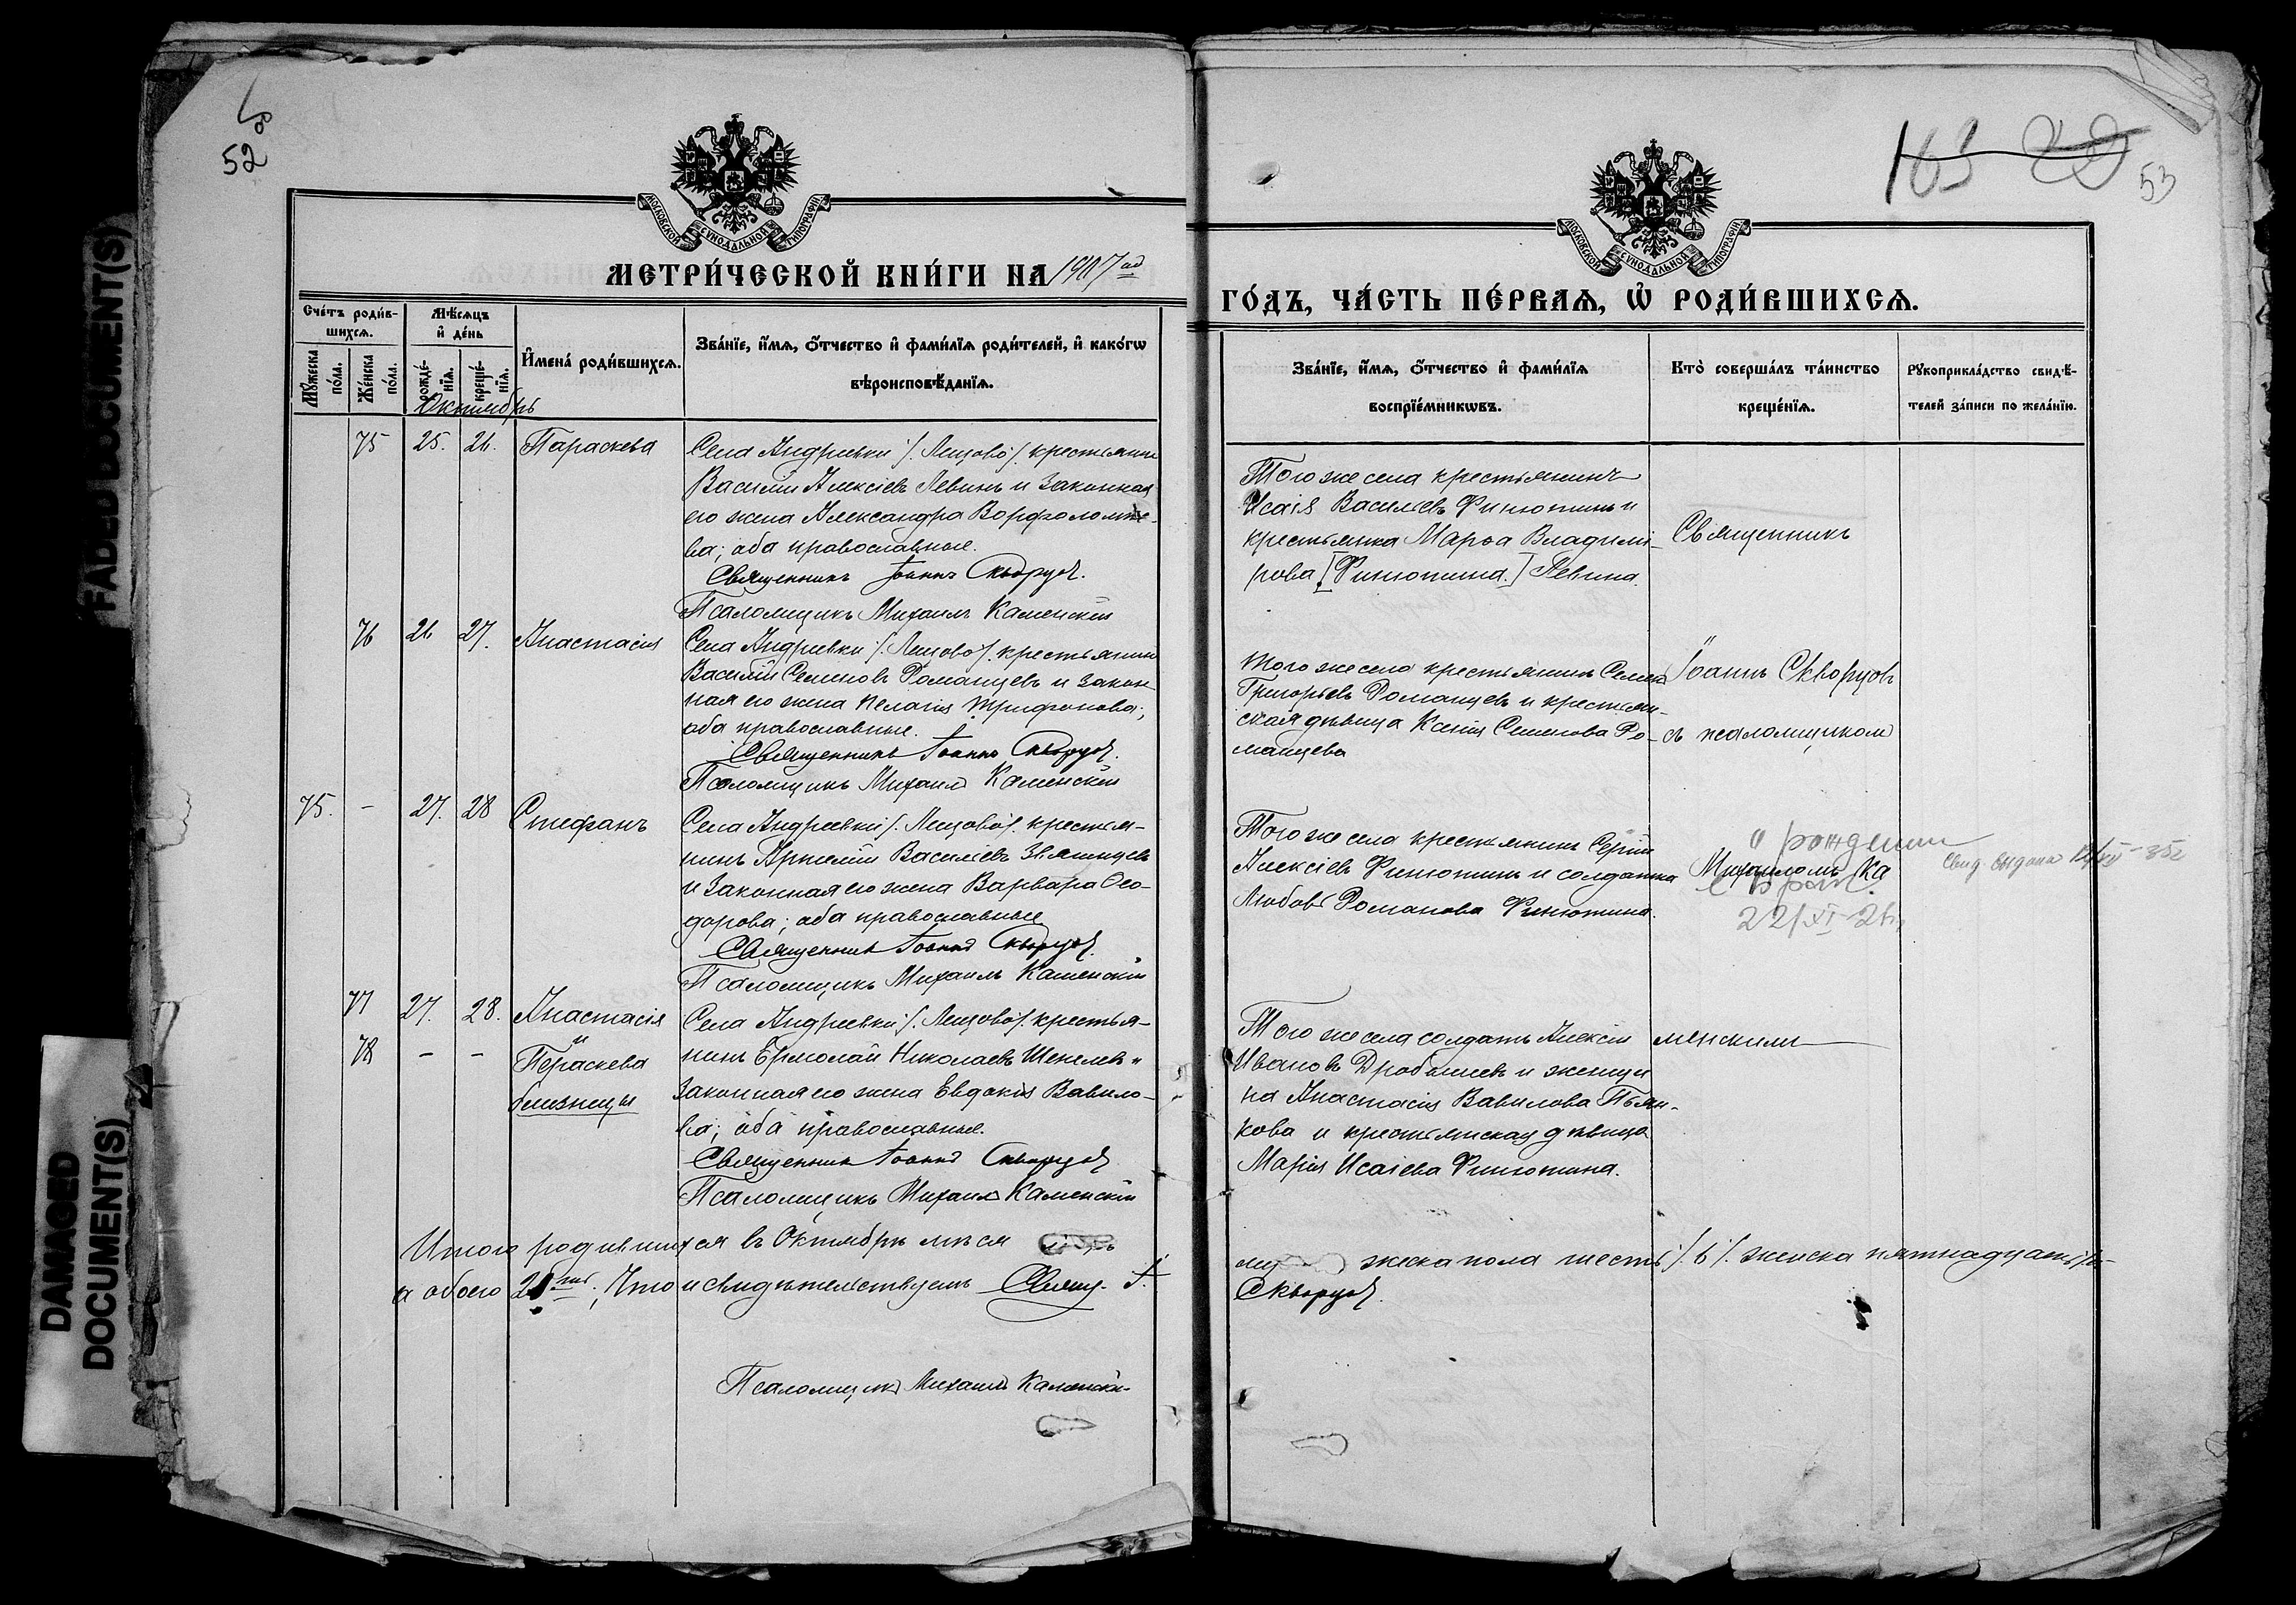 52
53
МОСКОВСКОЙ СУНОДАЛЬНОЙ ТИПОГРАФІИ
МОСКОВСКОЙ СУНОДАЛЬНОЙ ТИПОГРАФІИ
МЕТРИ́ЧЕСКОЙ КНИ́ГИ НА 1907 ой
ГО́ДЪ, ЧА́СТЬ ПЕ́РВАѦ, Ѽ РОДИ́ВШИХСѦ.
Сче́тъ роди́в-
шихсѧ.
Мꙋ́жеска
по́ла.
Же́нска
по́ла.
Мѣ́сѧцъ
и҆ де́нь
рожде́-
нїѧ.
креще́-
нїѧ.
И҆мена̀ роди́вшихсѧ.
Зва́нїе, и҆́мѧ, ѻ҆́тчество и҆ фами́лїѧ роди́телей, и҆ како́гѡ
вѣроисповѣ́данїѧ.
Зва́нїе, и҆́мѧ, ѻ҆́тчество и҆ фами́лїѧ
воспрїе́мникѡвъ.
Кто̀ соверша́лъ та́инство
креще́нїѧ.
Рꙋкоприкла́дство свидѣ́-
телей за́писи по жела́нїю.
Октябрь
75 25. 26. Параскева
Села Андреевки /. Лещово /. крестьянинъ
Василій Алексіевъ Левинъ и законная
его жена Александра Ворфоломее-
ва; оба православные.
Священникъ Іоаннъ Скворцов.
Псаломщикъ Михаилъ Каменскій
Того же села крестьянинъ
Исаія Василіевъ Финютинъ и
крестьянка Марѳа Владимі-
рова [Финютина.] Левина.
Священникъ
76 26 27. Анастасія
Села Андреевки /. Лещово /. крестьянинъ
Василій Семеновъ Романцевъ и закон-
ная его жена Пелагія Трифонова;
оба православные.
Священникъ Іоаннъ Скворцов.
Псаломщикъ Михаилъ Каменскій
Того же села крестьянинъ Семенъ
Григорьевъ Романцевъ и крестьян-
ская дѣвица Ксенія Семенова Ро-
манцева
Іоаннъ Скворцовъ
съ псаломщикомъ
75. – 27. 28 Стефанъ
Села Андреевки /. Лещово /. крестья-
нинъ Василіевъ Звягинцевъ
и законная его жена Варвара Ѳео-
дорова; оба православные
Священникъ Іоаннъ Скворцов.
Псаломщикъ Михаилъ Каменскій
Того же села крестьянинъ Сергій
Алексіевъ Финютинъ и солдатка
Любовь Романова Финютина.
о рождении
Михаиломъ Ка
и браке
22/XI-26г
Свид. выдано
77 27. 28. Анастасія
и
78 – – Параскева
близнецы
Села Андреевки /. Лещово /. крестья-
нинъ Ермолай Николаевъ Шепелевъ и
законная его жена Евдокія Вавило-
ва; оба православные.
Священникъ Іоаннъ Скворцов
Псаломщикъ Михаилъ Каменскій
Того же села солдатъ Алексій
Ивановъ Дробышевъ и женщи
на Анастасія Вавилова Пьян-
кова и крестьянская дѣвица
Марія Исаіева Финютина.
менскимъ
Итого родившихся въ Октябрѣ мѣся
жска пола шесть /. 6 /. женска пятнадцать
а обоего 21. Что и свидѣтельствуемъ Свящ. І.
Скворцов.
Псаломщикъ Михаилъ Каменскій
FADED DOCUMENT(S)
DAMAGED
DOCUMENT(S)